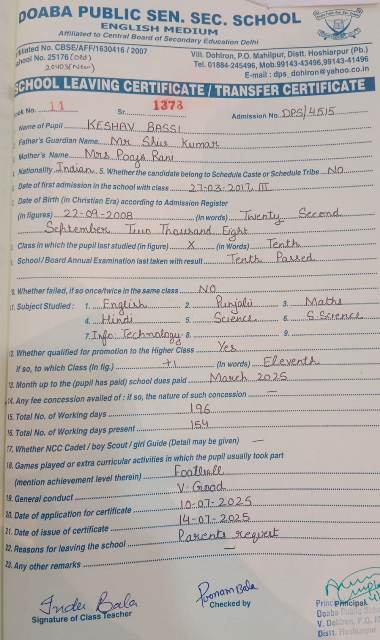 DOABA PUBLIC SEN. SEC. SCHOOL
ENGLISH MEDIUM
Affiliated to Central Board of Secondary Education Delhi
iliated No. CBSE/AFF/1630416 / 2007
Vill. Dohlron, P.O. Mahilpur, Distt. Hoshiarpur (Pb.)
hool No. 25176 (Old)
Tel. 01884-245496, Mob.99143-43496,99143-41496
20403 (New)
E-mail : dps_dohlron@yahoo.co.in
SCHOOL LEAVING CERTIFICATE / TRANSFER CERTIFICATE
ok No. 11 Sr. 1373 Admission No. DPS/4515
Name of Pupil KESHAV BASSI
Father's Guardian Name Mr Shiv Kumar
Mother's Name Mrs Pooja Rani
Nationality Indian 5. Whether the candidate belong to Schedule Caste or Schedule Tribe NO
Date of first admission in the school with class 27-03-2017, III
Date of Birth (in Christian Era) according to Admission Register
(in figures) 22-09-2008 (In words) Twenty Second
September Two Thousand Eight
Class in which the pupil last studied (in figure) X (in Words) Tenth
School / Board Annual Examination last taken with result Tenth Passed
10. Whether failed, if so once/twice in the same class NO
11. Subject Studied : 1. English 2. Punjabi 3. Maths
4. Hindi 5. Science 6. S.Science
7. Info: Technology 8. 9.
12. Whether qualified for promotion to the Higher Class Yes
if so, to which Class (In fig.) +1 (In words) Eleventh
13. Month up to the (pupil has paid) school dues paid March 2025
14. Any fee concession availed of : if so, the nature of such concession —
15. Total No. of Working days 196
16. Total No. of Working days present 154
17. Whether NCC Cadet / boy Scout / girl Guide (Detail may be given) —
18. Games played or extra curricular activities in which the pupil usually took part
(mention achievement level therein) Football
19. General conduct V. Good
20. Date of application for certificate 10-07-2025
21. Date of issue of certificate 14-07-2025
22. Reasons for leaving the school Parents request
23. Any other remarks —
Inder Bala
Signature of Class Teacher
Poonam Bala
Checked by
Principal
Doaba Public
V. Dohlron, P.O.
Distt. Hoshiarpur